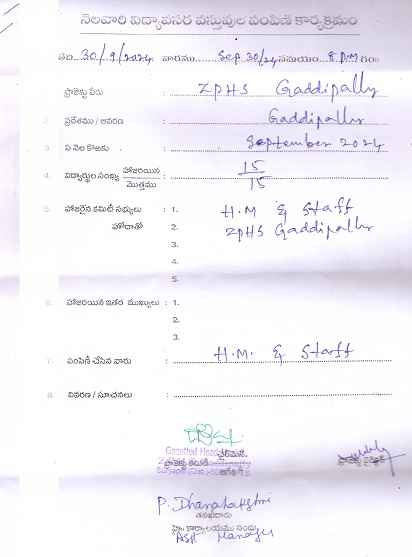 నెలవారి విద్యావసర వస్తువుల పంపిణి కార్యక్రమం
తేది 30/9/2024 వారము Sep 30/24 సమయం 8 P.M గం॥
ప్రాజెక్టు పేరు : ZPHS Gaddipally
2. ప్రదేశము / ఆవరణ : Gaddipally
3. ఏ నెల కొఱకు : September 2024
4. విద్యార్థుల సంఖ్య హాజరయిన / మొత్తము : 15 / 15
5. హాజరైన కమిటీ సభ్యులు : 1. H.M & Staff
హోదాతో 2. ZPHS Gaddipally
3.
4.
5.
6. హాజరయిన ఇతర ముఖ్యులు : 1.
2.
3.
7. పంపిణీ చేసిన వారు : H.M. & Staff
8. వివరణ / సూచనలు :
Gazetted Head చైర్మన్,
ప్రాజెక్టు కమిటి
P. Dhanalakshmi
తనఖీదారు
హై. కార్యాలయము సంధ్య
Manager